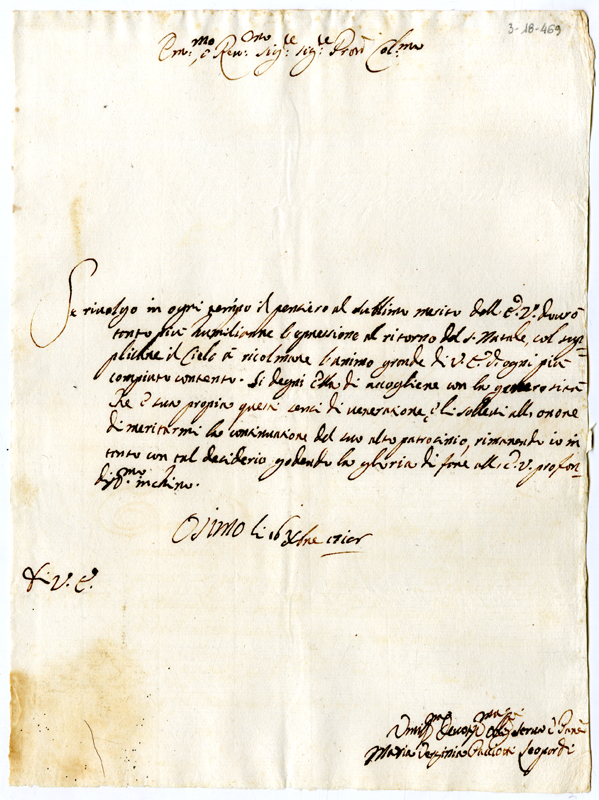 3-18-469
Em.mo, e Rev.mo Sig.re Sig.re Pron Col.mo
Se rivolgo in ogni tempo il pensiero al sublime merito dell' E. V. dovrò
tanto più humiliarne l'espressione al ritorno del S. Natale, col sup=
plicare il Cielo à ricolmare l'animo grande di V. E. di ogni più
compiuto contento. Si degni Ella di accogliere con la generosità
che è sua propria questi cenci di veneratione, e li sollevi all' onore
di meritarmi la continuatione del suo alto patrocinio, rimanendo io in
tanto con tal desiderio godendo la gloria di fare all' E. V. profon=
diss.mo inchino.
Osimo li 16 Xbre
Di V. E.
Umil.ma Devot.ma Obl.ma Serva
Maria Verginia Leopardi